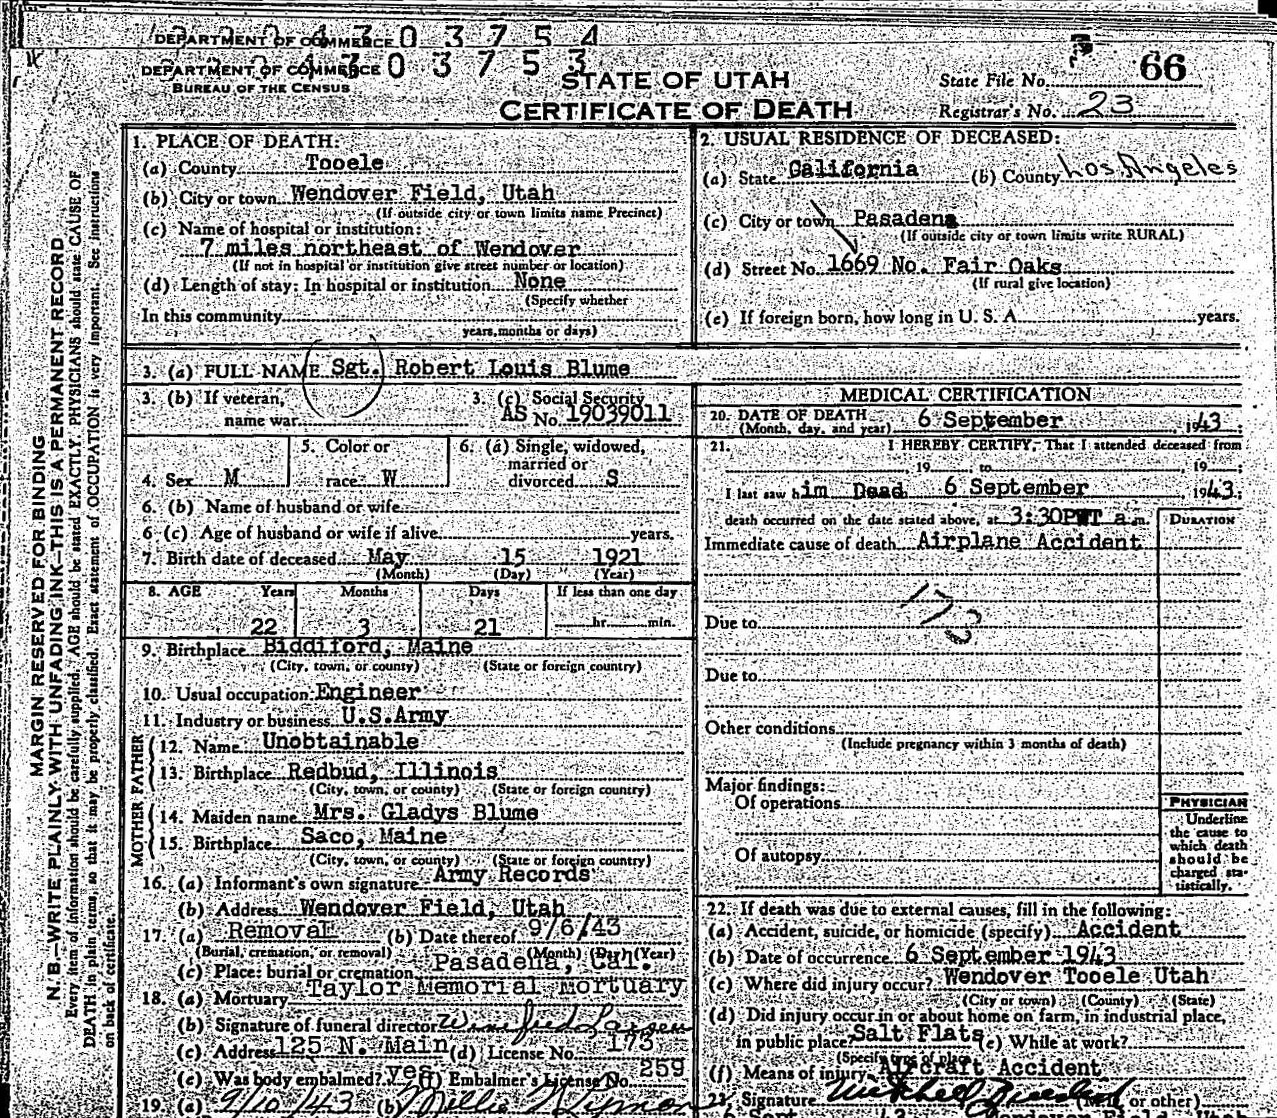 DEPARTMENT OF COMMERCE 0 3 7 5 4
DEPARTMENT OF COMMERCE 0 3 7 5 3
BUREAU OF THE CENSUS
STATE OF UTAH
CERTIFICATE OF DEATH
State File No. 66
Registrar's No. 23
MARGIN RESERVED FOR BINDING
N. B.—WRITE PLAINLY WITH UNFADING INK—THIS IS A PERMANENT RECORD
Every item of information should be carefully supplied. AGE should be stated EXACTLY. PHYSICIANS should state CAUSE OF
DEATH in plain terms, so that it may be properly classified. Exact statement of OCCUPATION is very important. See instructions
on back of certificate.
1. PLACE OF DEATH:
(a) County Tooele
(b) City or town Wendover Field, Utah
(If outside city or town limits name Precinct)
(c) Name of hospital or institution:
7 miles northeast of Wendover
(If not in hospital or institution give street number or location)
(d) Length of stay: In hospital or institution None
(Specify whether
In this community
years, months or days)
2. USUAL RESIDENCE OF DECEASED:
(a) State California (b) County Los Angeles
(c) City or town Pasadena
(If outside city or town limits write RURAL)
(d) Street No. 1669 No. Fair Oaks
(If rural give location)
(e) If foreign born, how long in U. S. A. years.
3. (a) FULL NAME Sgt. Robert Louis Blume
3. (b) If veteran, name war
3. (c) Social Security
AS No. 19039011
4. Sex M
5. Color or race W
6. (a) Single, widowed, married or divorced S
6. (b) Name of husband or wife
6 (c) Age of husband or wife if alive years.
7. Birth date of deceased May 15 1921
(Month) (Day) (Year)
8. AGE Years Months Days If less than one day
22 3 21 hr. min.
9. Birthplace Biddiford, Maine
(City, town, or county) (State or foreign country)
10. Usual occupation Engineer
11. Industry or business U.S.Army
FATHER
12. Name Unobtainable
13. Birthplace Redbud, Illinois
(City, town, or county) (State or foreign country)
MOTHER
14. Maiden name Mrs. Gladys Blume
15. Birthplace Saco, Maine
(City, town, or county) (State or foreign country)
16. (a) Informant's own signature Army Records
(b) Address Wendover Field, Utah
17. (a) Removal (b) Date thereof 9/6/43
(Burial, cremation, or removal) (Month) (Day) (Year)
(c) Place: burial or cremation Pasadena, Cal.
18. (a) Mortuary Taylor Memorial Mortuary
(b) Signature of funeral director
(c) Address 125 N. Main (d) License No. 173
(e) Was body embalmed? yes (f) Embalmer's License No. 259
19 (a) 9/10/43 (b)
MEDICAL CERTIFICATION
20. DATE OF DEATH 6 September, 1943
(Month, day, and year)
21. I HEREBY CERTIFY, That I attended deceased from
, 19 to , 19 ;
I last saw him Dead 6 September 1943;
death occurred on the date stated above, at 3:30PWT a m.
Immediate cause of death Airplane Accident
DURATION
173
Due to
Due to
Other conditions
(Include pregnancy within 3 months of death)
Major findings:
Of operations
Of autopsy
PHYSICIAN
Underline
the cause to
which death
should be
charged sta-
tistically.
22. If death was due to external causes, fill in the following:
(a) Accident, suicide, or homicide (specify) Accident
(b) Date of occurrence 6 September 1943
(c) Where did injury occur? Wendover Tooele Utah
(City or town) (County) (State)
(d) Did injury occur in or about home on farm, in industrial place,
in public place? Salt Flats (e) While at work?
(Specify type of place)
(f) Means of injury Aircraft Accident
23. Signature or other)